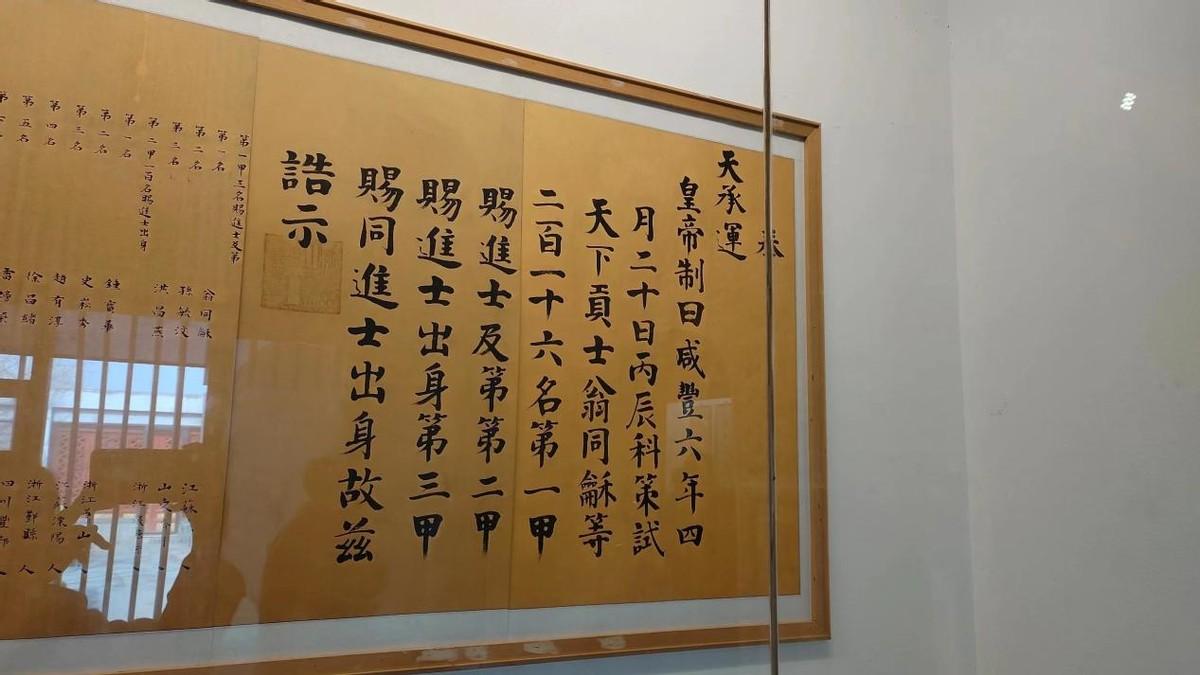 奉
天承運
皇帝制曰咸豐六年四
月二十日丙辰科策試
天下貢士翁同龢等
二百一十六名第一甲
賜進士及第第二甲
賜進士出身第三甲
賜同進士出身故茲
誥示
第一甲三名賜進士及第
第一名 翁同龢 江蘇 人
第二名 孫毓汶 山東 人
第三名 洪昌燕 浙江 人
第二甲一百名賜進士出身
第一名 鍾寶華 浙江 山人
第二名 史 溧陽人
第三名 趙有淳 浙江鄞縣人
第四名 徐昌緒 四川豐都人
第五名